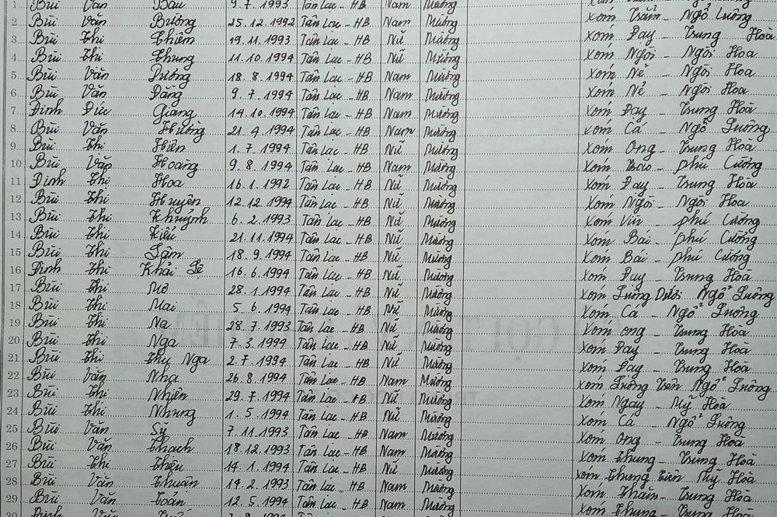 1 Bùi Văn Báu 9.7.1993 Tân Lạc - HB Nam Mường
2 Bùi Văn Bường 25.12.1992 Tân Lạc - HB Nam Mường Xóm Trăm - Ngổ Luông
3 Bùi Thị Chiêm 19.11.1993 Tân Lạc - HB Nữ Mường Xóm Đay - Trung Hoà
4 Bùi Thị Chung 11.10.1994 Tân Lạc - HB Nữ Mường Xóm Ngòi - Ngòi Hoa
5 Bùi Văn Dương 18.8.1994 Tân Lạc - HB Nam Mường Xóm Nẻ - Ngòi Hoa
6 Bùi Văn Đăng 9.7.1994 Tân Lạc - HB Nam Mường Xóm Nẻ - Ngòi Hoa
7 Đinh Đức Giang 14.10.1994 Tân Lạc - HB Nam Mường Xóm Đay - Trung Hoà
8 Bùi Văn Hường 21.4.1994 Tân Lạc - HB Nam Mường Xóm Cá - Ngổ Luông
9 Bùi Thị Hiên 1.7.1994 Tân Lạc - HB Nữ Mường Xóm Ong - Trung Hoà
10 Bùi Văn Hoàng 9.8.1994 Tân Lạc - HB Nam Mường Xóm - Phú Cường
11 Đinh Thị Hoa 16.1.1992 Tân Lạc - HB Nữ Mường Xóm Đay - Trung Hoà
12 Bùi Thị Huyên 12.12.1994 Tân Lạc - HB Nữ Mường Xóm Ngòi - Ngòi Hoa
13 Bùi Thị Khuỳnh 6.2.1993 Tân Lạc - HB Nữ Mường Xóm Vín - Phú Cường
14 Bùi Thị Kiều 21.11.1994 Tân Lạc - HB Nữ Mường Xóm Bái - Phú Cường
15 Bùi Thị Lâm 18.9.1994 Tân Lạc - HB Nữ Mường Xóm Bái - Phú Cường
16 Đinh Thị Khải Lệ 16.6.1994 Tân Lạc - HB Nữ Mường Xóm Đay - Trung Hoà
17 Bùi Thị Mơ 28.1.1994 Tân Lạc - HB Nữ Mường Xóm Luông Dưới - Ngổ Luông
18 Bùi Thị Mai 5.6.1994 Tân Lạc - HB Nữ Mường Xóm Cá - Ngổ Luông
19 Bùi Thị Na 28.7.1993 Tân Lạc - HB Nữ Mường Xóm Ong - Trung Hoà
20 Bùi Thị Nga 7.3.1994 Tân Lạc - HB Nữ Mường Xóm Đay - Trung Hoà
21 Bùi Thị Thu Nga 2.7.1994 Tân Lạc - HB Nữ Mường Xóm Đay - Trung Hoà
22 Bùi Văn Nhạ 26.8.1994 Tân Lạc - HB Nam Mường Xóm Luông Trên - Ngổ Luông
23 Bùi Thị Nhiên 29.7.1994 Tân Lạc - HB Nữ Mường Xóm Ngay - Mỹ Hoà
24 Bùi Thị Nhung 1.5.1994 Tân Lạc - HB Nữ Mường Xóm Cá - Ngổ Luông
25 Bùi Văn Sỹ 7.11.1993 Tân Lạc - HB Nam Mường Xóm Ong - Trung Hoà
26 Bùi Văn Thạch 18.12.1993 Tân Lạc - HB Nam Mường Xóm Thung - Trung Hoà
27 Bùi Thị Thiệu 14.1.1994 Tân Lạc - HB Nữ Mường Xóm Chung - Mỹ Hoà
28 Bùi Văn Thuân 14.2.1993 Tân Lạc - HB Nam Mường Xóm Thăm - Trung Hoà
29 Bùi Văn Toán 12.5.1994 Tân Lạc - HB Nam Mường Xóm Thung - Trung Hoà